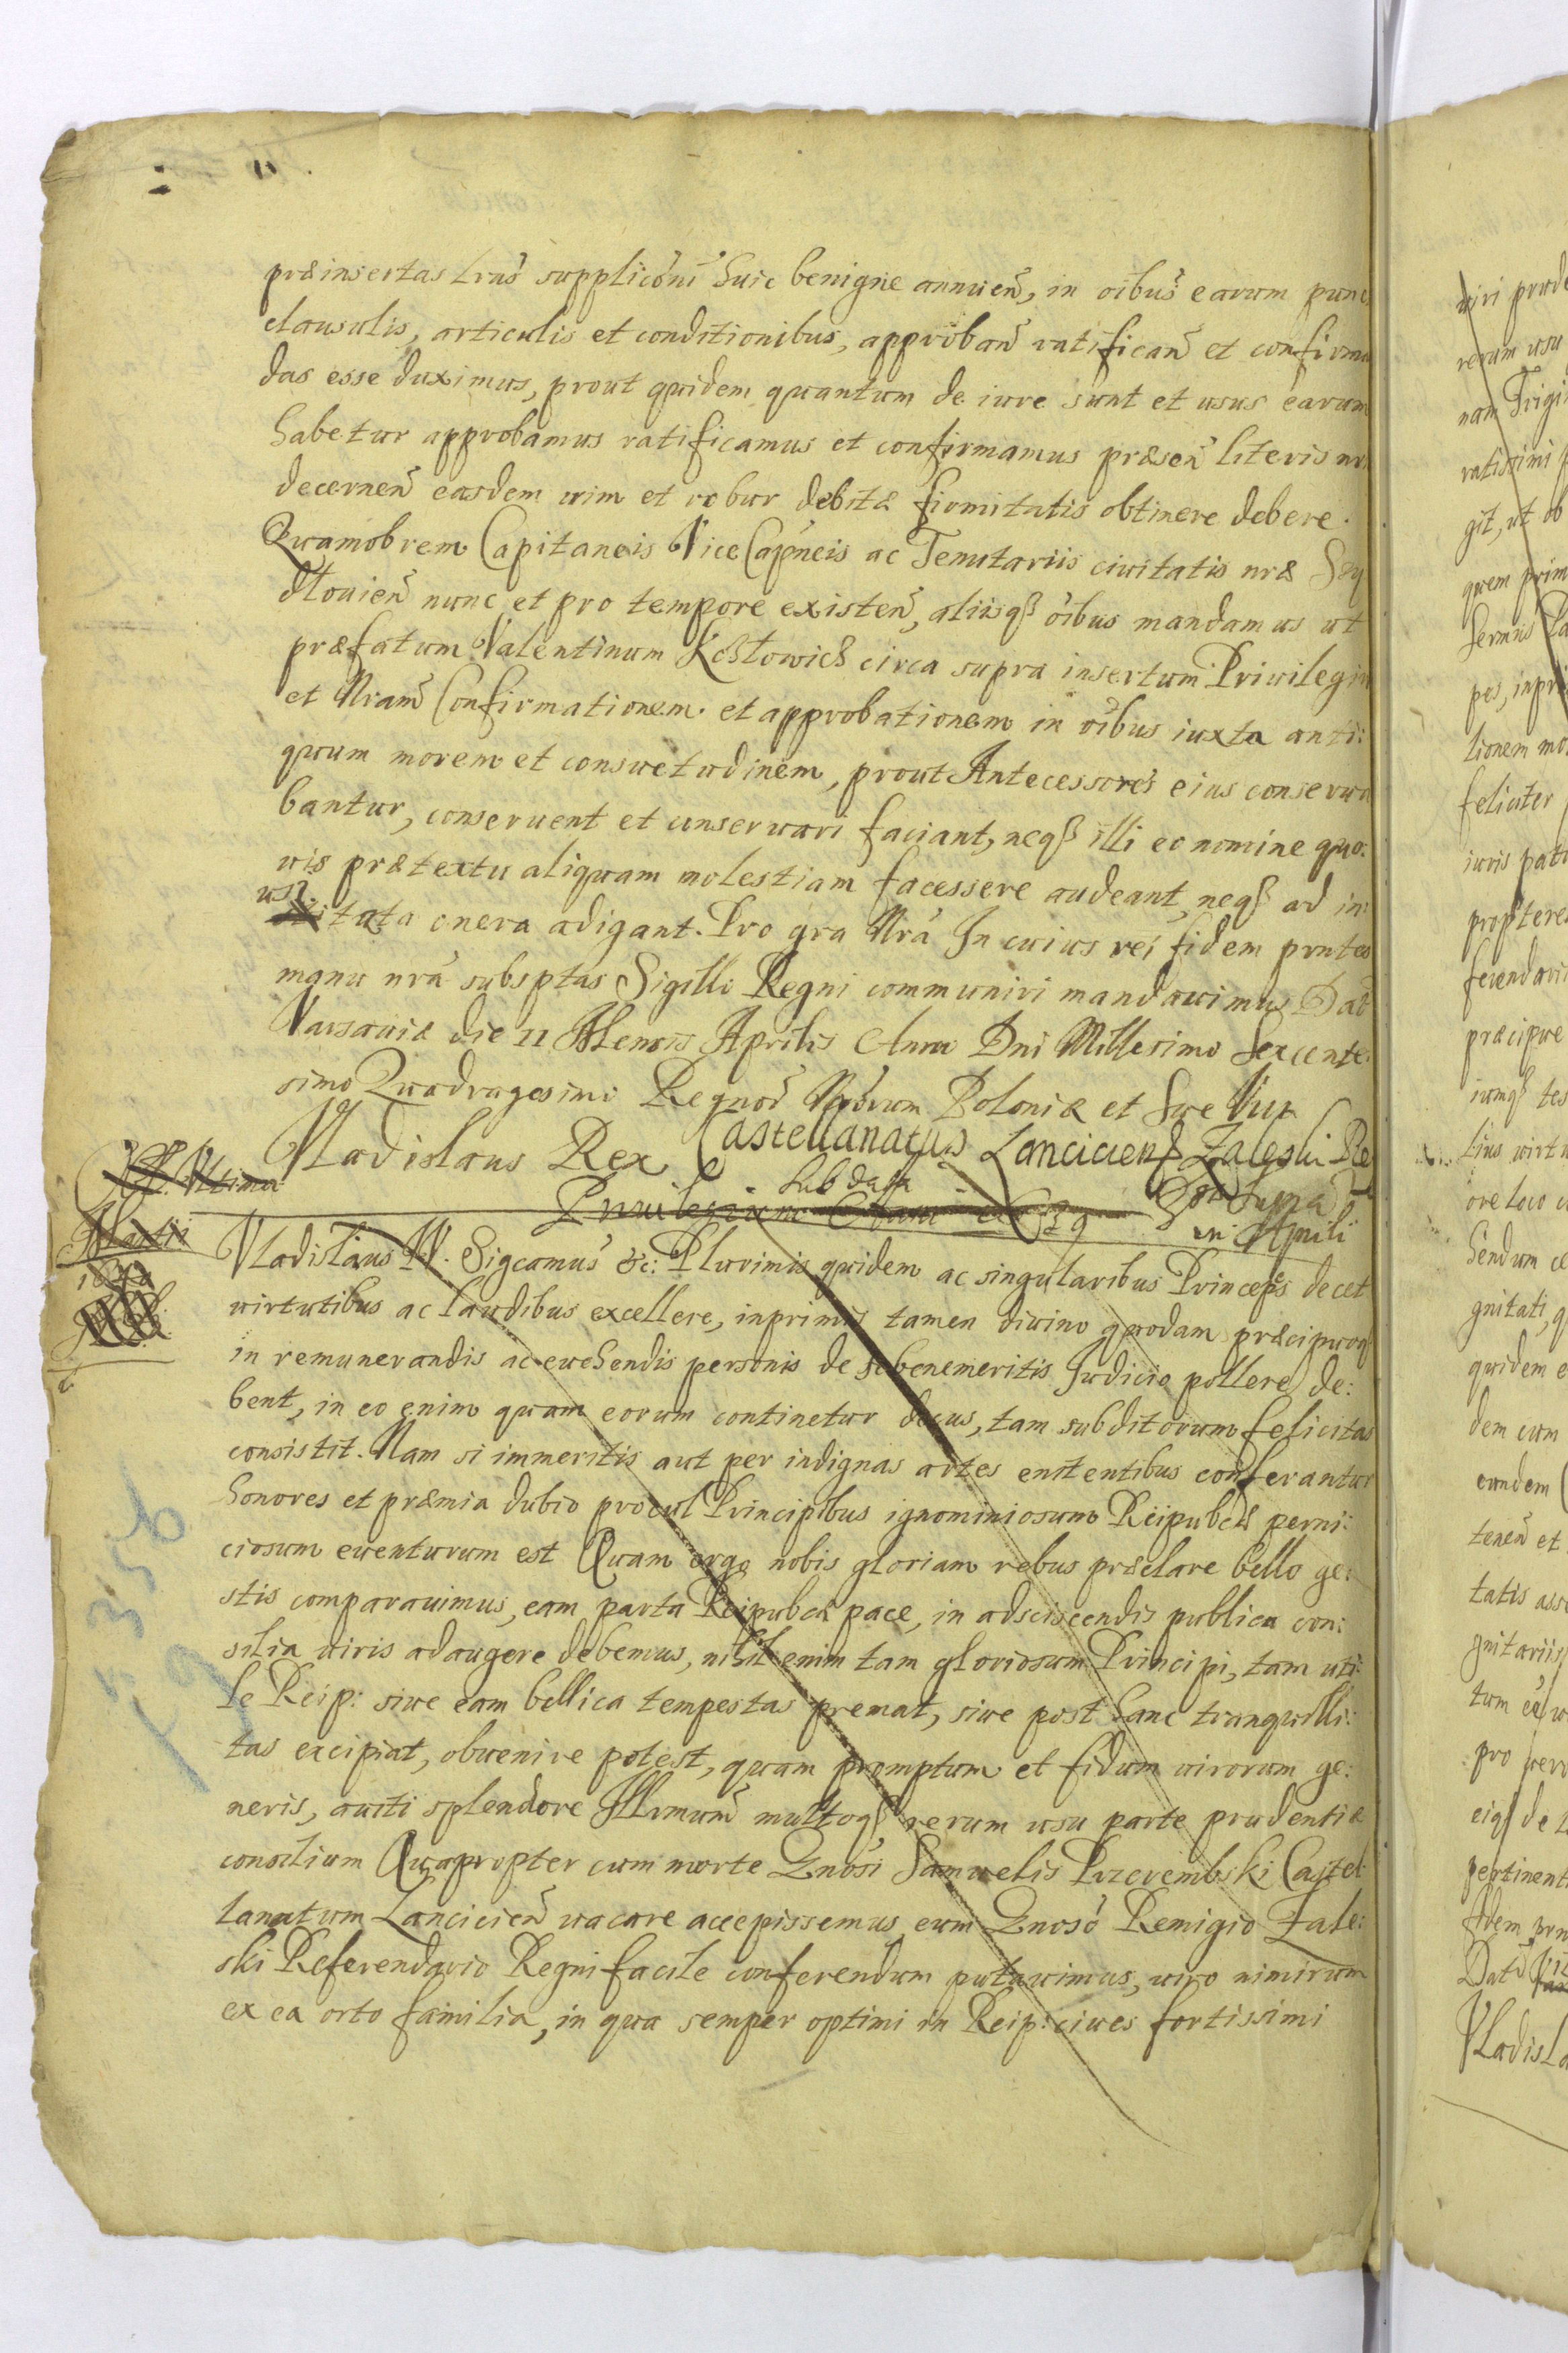 præinsertas Lrās supplicōni huic benigne annuen̄, in oībus earum punc
clausulis, articulis et conditionibus, approban̄ ratifican̄ et confirma
das esse duximus, prout quidem quantum de iure sunt et usus earum
habetur approbamus ratificamus et confirmamus præsen̄ literis nr̄
decernen̄ easdem uim et robur debitæ firmitatis obtinere debere.
Quamobrem Capitaneis Vice Capneis ac Tenutariis ciuitatis nræ Szy
dłouien̄ nunc et pro tempore existen̄, aliisqȝ oībus mandamus ut
præfatum Valentinum Kośłowicz circa supra insertum Priuilegiu
et Nram̄ Confirmationem et approbationem in oībus iuxta anti:
quum morem et consuetudinem, prout Antecessores eius conserua
bantur, conseruent et conseruari faciant, neqȝ illi eo nomine quo:
uis prætextu aliquam molestiam facessere audeant, neqȝ ad in:
usitata onera adigant. Pro gra Nrā In cuius rei fidem pntes
manu nrā subsptas Sigillo Regni communiri mandauimus Dat
Varsauiæ die 11 Mensis Aprilis Anno Dni Millesimo Sexcente:
simo Quadragesimo Regnor̄ Nrōrum Poloniæ et Swe VIII
Vladislaus Rex Castellanatus Lanciciens Zaleski Re
Vltima
Martii
1640
Sub data
Priuilegium 639
Dat supra
in Aprili
Vladislaus IV. Sigcamus &c: Plurimis quidem ac singularibus Princeps decet
uirtutibus ac laudibus excellere, inprimis tamen diuino quodam præcipuoqȝ
in remunerandis ac euehendis personis de se benemeritis Judicio pollere de:
bent, in eo enim quam eorum continetur decus, tam subditorum felicitas
consistit. Nam si immeritis aut per indignas artes enitentibus conferantur
honores et præmia dubio procul Principibus ignominiosum Reipubcæ perni:
ciosum euenturum est Quam ergo nobis gloriam rebus præclare bello ge:
stis comparauimus, eam parta Reipubcæ pace, in adsciscendis publica con:
silia uiris adaugere debemus, nihil enim tam gloriosum Principi, tam uti:
le Reip: siue eam bellica tempestas premat, siue post hanc tranquilli:
tas excipiat, obuenire potest, quam promptum et fidum uirorum ge:
neris, auiti splendore Illrmum̄ multoqȝ rerum usu parte prudentiæ
consilium Quapropter cum morte Gnosi Samuelis Przerembski Castel:
lanatum Lancicien̄ uacare accepissemus eum Gnoso Remigio Zale:
ski Referendario Regni facile conferendum putauimus, uiro nimirum
ex ea orto familia, in qua semper optimi in Reip: ciues fortissimi
rerum usu
git, ut ob
quem prim
lionem mo
feliciter
iuris patr
præcipue
dem cum
eundem
tatis asse
pro uero
eiqȝ de
pertinent
Vladisla